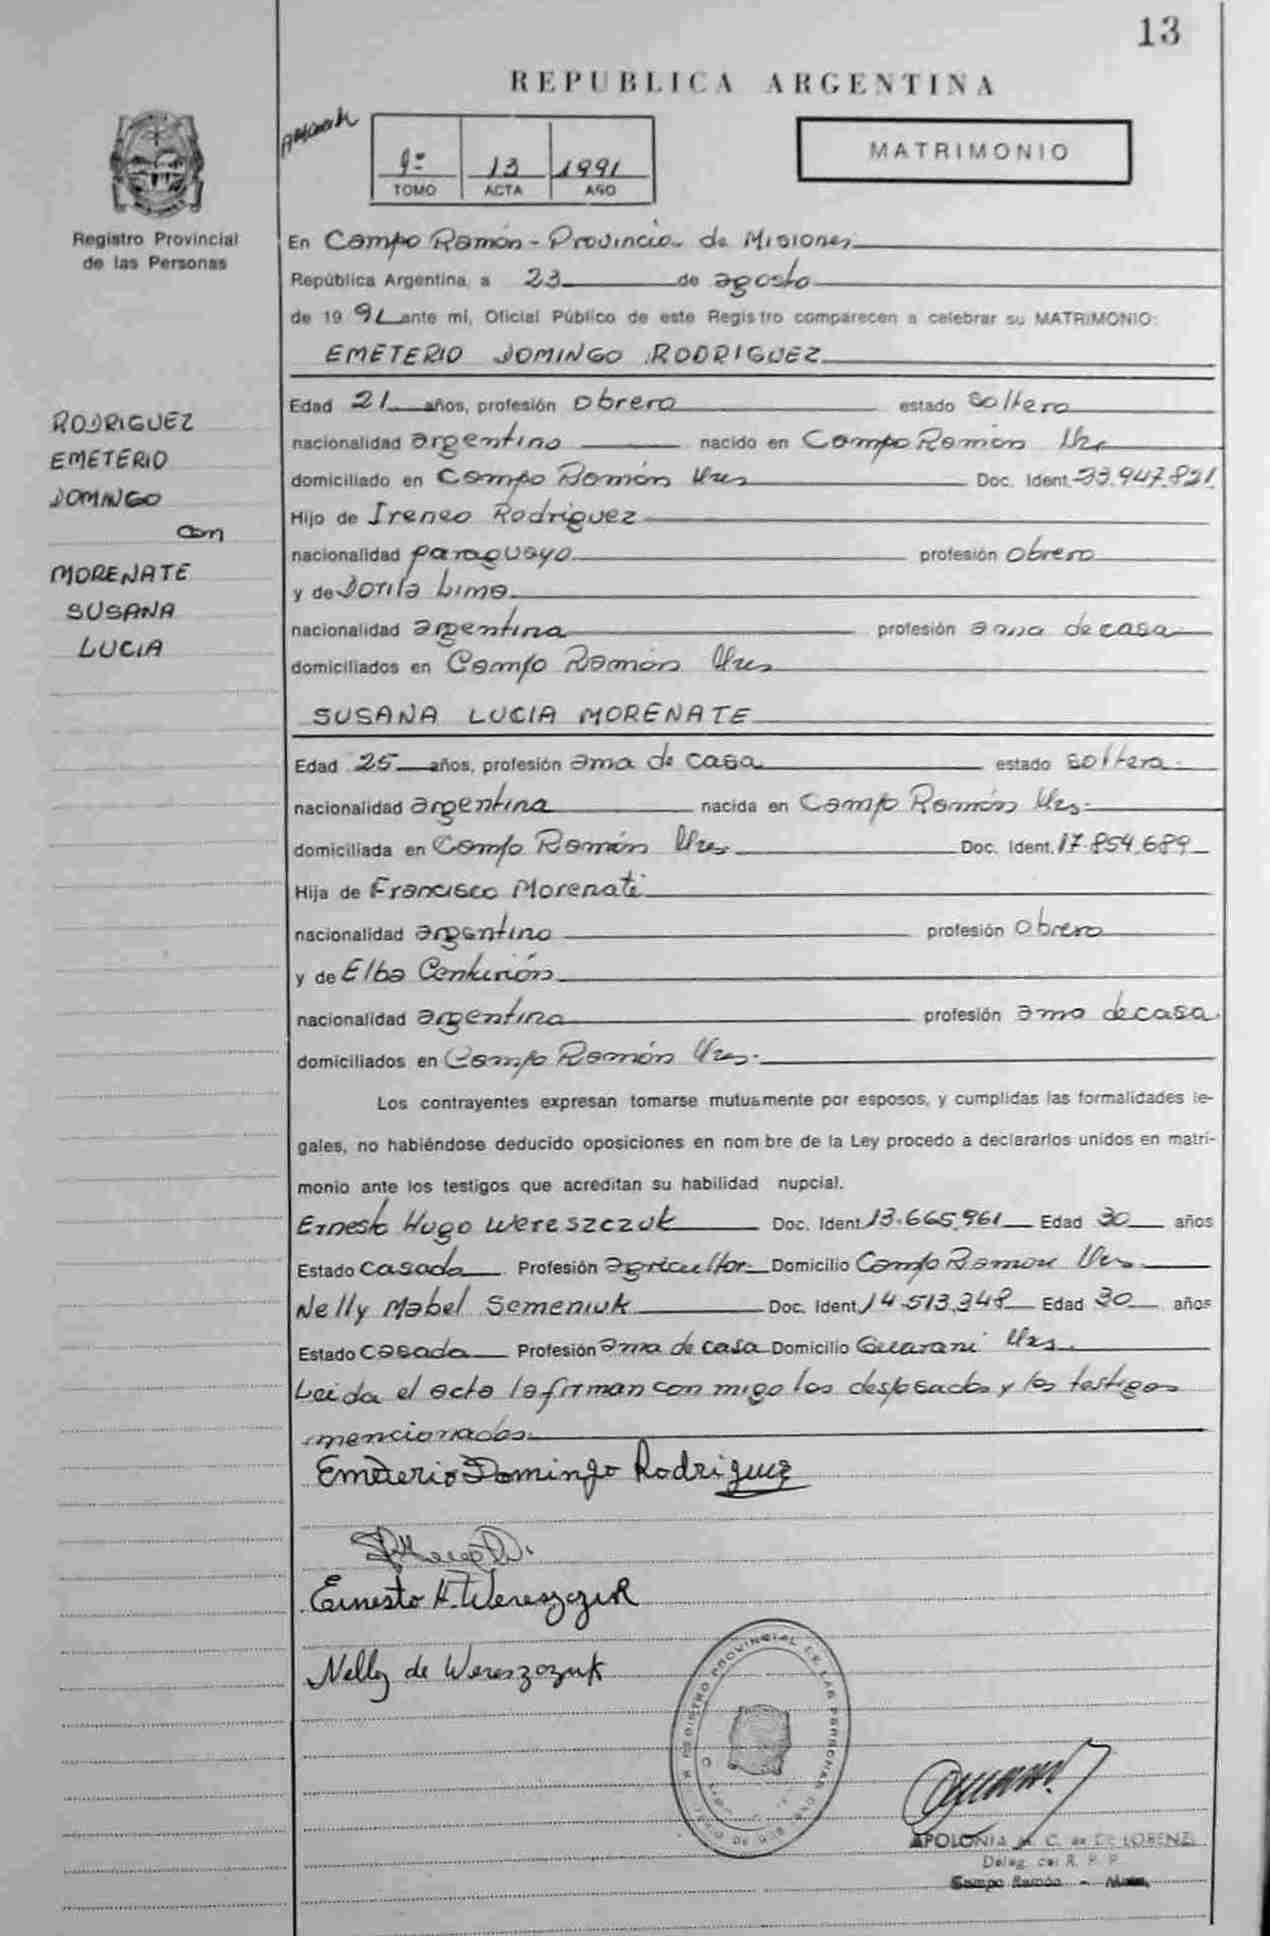 13
REPUBLICA ARGENTINA
1º 13 1991
TOMO ACTA AÑO
MATRIMONIO
Registro Provincial
de las Personas
En Campo Ramón - Provincia de Misiones
República Argentina, a 23 de agosto
de 1991 ante mí, Oficial Público de este Registro comparecen a celebrar su MATRIMONIO:
EMETERIO DOMINGO RODRIGUEZ
RODRIGUEZ
EMETERIO
DOMINGO
con
MORENATE
SUSANA
LUCIA
Edad 21 años, profesión obrero estado soltero
nacionalidad argentino nacido en Campo Ramón Mnes
domiciliado en Campo Ramón Mnes Doc. Ident. 23.947.821
Hijo de Ireneo Rodriguez
nacionalidad paraguayo profesión obrero
y de Dorila Lima
nacionalidad argentina profesión ama de casa
domiciliados en Campo Ramón Mnes
SUSANA LUCIA MORENATE
Edad 25 años, profesión ama de casa estado soltera
nacionalidad argentina nacida en Campo Ramón Mnes.
domiciliada en Campo Ramón Mnes Doc. Ident. 17.854.689
Hija de Francisco Morenate
nacionalidad argentino profesión obrero
y de Elba Centurión
nacionalidad argentina profesión ama de casa.
domiciliados en Campo Ramón Mnes.
Los contrayentes expresan tomarse mutuamente por esposos, y cumplidas las formalidades le-
gales, no habiéndose deducido oposiciones en nombre de la Ley procedo a declararlos unidos en matri-
monio ante los testigos que acreditan su habilidad nupcial.
Ernesto Hugo Wereszczuk Doc. Ident. 13.665.961 Edad 30 años
Estado casado Profesión agricultor Domicilio Campo Ramon Mnes
Nelly Mabel Semeniuk Doc. Ident. 14.513.348 Edad 30 años
Estado casada Profesión ama de casa Domicilio Guarani Mnes.
Leida el acta la firman con migo los desposados y los testigos
mencionados.
Emeterio Domingo Rodriguez
Ernesto H. Wereszczuk
Nelly de Wereszczuk
REGISTRO PROVINCIAL DE LAS PERSONAS
APOLONIA M. C. de DE LORENZI
Deleg. del R. P. P.
Campo Ramón - Mnes.